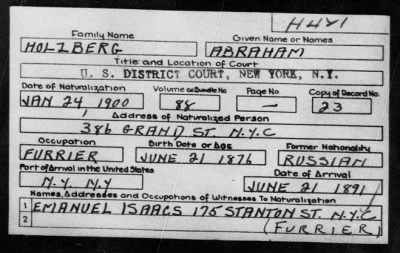 H441
Family Name Given Name or Names
HOLZBERG ABRAHAM
Title and Location of Court
U. S. DISTRICT COURT, NEW YORK, N.Y.
Date of Naturalization Volume or Bundle No. Page No. Copy of Record No.
JAN 24 1900 88 — 23
Address of Naturalized Person
386 GRAND ST. N.Y.C
Occupation Birth Date or Age Former Nationality
FURRIER JUNE 21 1876 RUSSIAN
Port of Arrival in the United States Date of Arrival
N.Y. N.Y JUNE 21 1891
Names, Addresses and Occupations of Witnesses To Naturalization
1 EMANUEL ISAACS 175 STANTON ST. N.Y.C
2 (FURRIER)